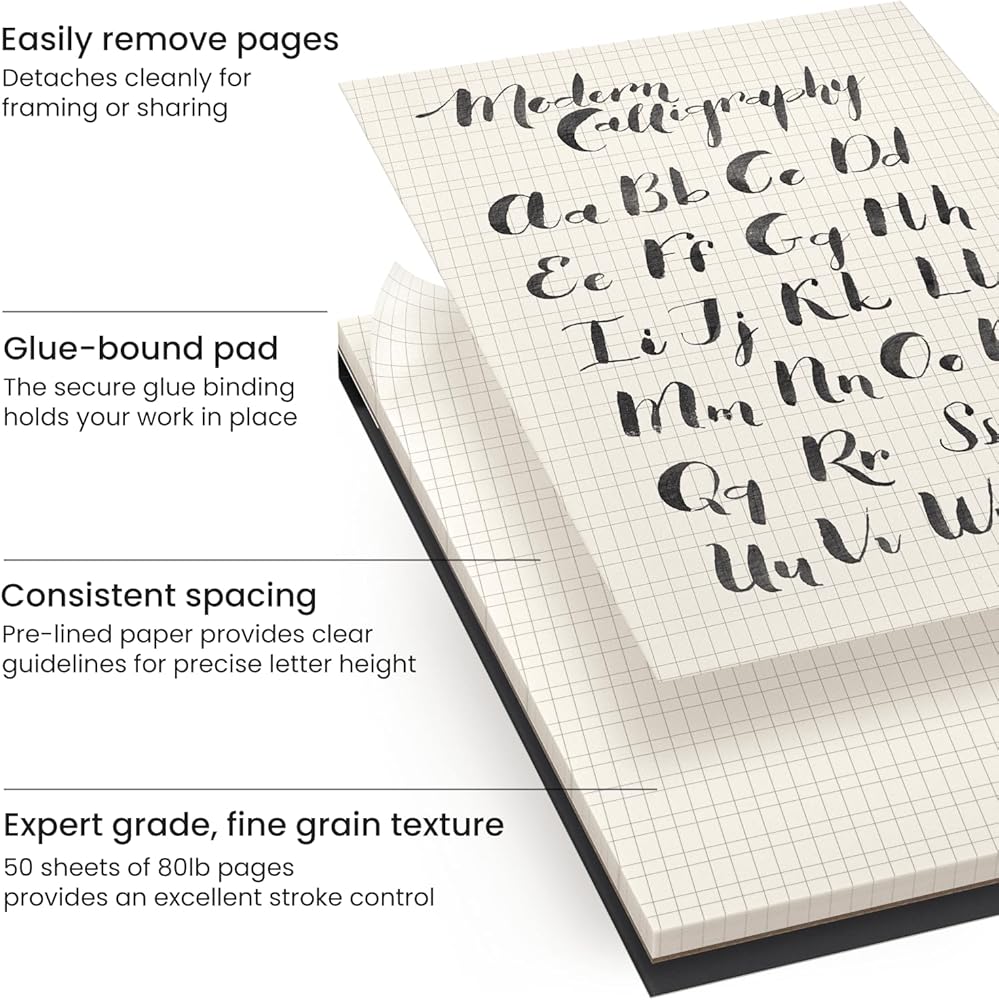 Easily remove pages
Detaches cleanly for
framing or sharing
Glue-bound pad
The secure glue binding
holds your work in place
Consistent spacing
Pre-lined paper provides clear
guidelines for precise letter height
Expert grade, fine grain texture
50 sheets of 80lb pages
provides an excellent stroke control
Modern
Calligraphy
Aa Bb Cc Dd
Ee Ff Gg Hh
Ii Jj Kk Ll
Mm Nn Oo
Qq Rr Ss
Uu Vv W